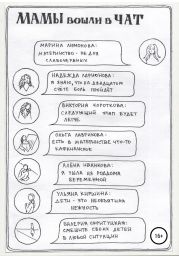 МАМЫ ВОШЛИ В ЧАТ
МАРИНА ЛИМОНОВА:
МАТЕРИНСТВО - НЕ ДЛЯ
СЛАБОНЕРВНЫХ
НАДЕЖДА ЛАРИОНОВА:
Я ЗНАЮ, ЧТО НА ДВАДЦАТОМ
СЧЕТЕ БОЛЬ ПРОЙДЁТ
ВИКТОРИЯ КОРОТКОВА:
СЛЕДУЮЩИЙ ЭТАП БУДЕТ
ЛЕГЧЕ
ОЛЬГА ЛАВРИКОВА:
ЕСТЬ В МАТЕРИНСТВЕ ЧТО-ТО
КАФКИАНСКОЕ
АЛЁНА ИВАНКОВА:
Я УШЛА ИЗ РОДДОМА
БЕРЕМЕННОЙ
УЛЬЯНА КИРШИНА:
ДЕТИ - ЭТО НЕОБЪЯТНАЯ
НЕЖНОСТЬ
ВАЛЕРИЯ
СМЕШИТЕ СВОИХ ДЕТЕЙ
В ЛЮБОЙ СИТУАЦИИ
16+